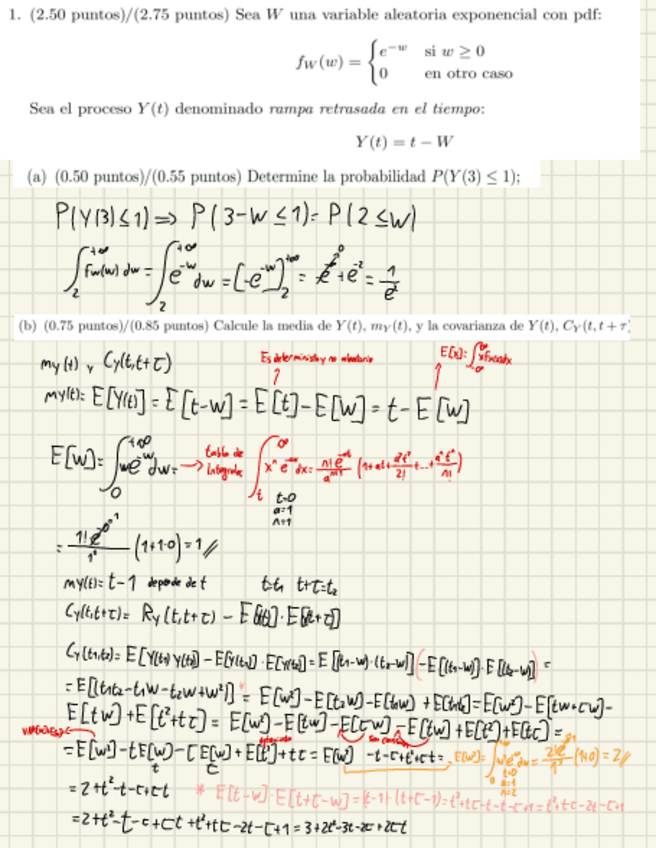 1. (2.50 puntos)/(2.75 puntos) Sea W una variable aleatoria exponencial con pdf:
f_W(w) = { e^{-w} si w ≥ 0
0 en otro caso
Sea el proceso Y(t) denominado rampa retrasada en el tiempo:
Y(t) = t − W
(a) (0.50 puntos)/(0.55 puntos) Determine la probabilidad P(Y(3) ≤ 1);
P(Y(3)≤1) ⇒ P(3-W≤1) = P(2≤W)
∫_2^{+∞} f_W(w) dw = ∫_2^{+∞} e^{-w} dw = [-e^{-w}]_2^{+∞} = + e^{-2} = 1/e^2
(b) (0.75 puntos)/(0.85 puntos) Calcule la media de Y(t), m_Y(t), y la covarianza de Y(t), C_Y(t, t + τ)
my(t) y Cy(t,t+τ)
Es determinista y no aleatorio
E[x]: ∫_{-∞}^{∞}
my(t) = E[Y(t)] = E[t-w] = E[t] - E[w] = t - E[w]
E[w] = ∫_0^{+∞} w e^{-w} dw = → tabla de integrales ∫_t^∞ x^n e^{-ax} dx = n! e^{-at}/a^{n+1} (1+at+a²t²/2!+...+a^n t^n/n!)
t=0
a=1
n=1
= 1! e^0 / 1^1 (1+1·0) = 1 //
my(t) = t-1 depende de t t=t₁ t+τ=t₂
Cy(t,t+τ) = Ry(t,t+τ) -
Cy(t₁,t₂) = E[Y(t₁) Y(t₂)] - E[Y(t₁)]·E[Y(t₂)] = E[(t₁-w)·(t₂-w)] - E[(t₁-w)]·E[(t₂-w)] =
= E[(t₁t₂ - t₁w - t₂w + w²)] * = E[w²] - E[t₂w] - E[t₁w] + E[t₁t₂] = E[w²] - E[tw+τw] -
E[tw] + E[t²+tτ] = E[w²] - E[tw] - E[τw] - E[tw] + E[t²] + E[tτ] =
= E[w²] - tE[w] - τE[w] + E[t²] + tτ = E[w²] - t - τ + t² + τt = , E[w²] = ∫_0^∞ w² e^{-w} dw = 2! e^0 / 1 (1+0) = 2 //
t=0
a=1
n=2
= 2+t²-t-τ+τt * E[t-w]·E[t+τ-w] = (t-1)·(t+τ-1) = t²+tτ-t-t-τ+1 = t²+tτ-2t-τ+1
= 2+t²-t-τ+τt+t²+tτ-2t-τ+1 = 3+2t²-3t-2τ+2τt